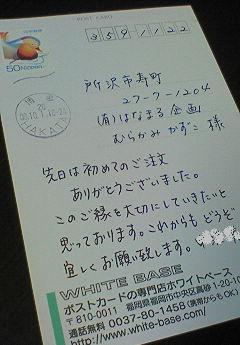 POST CARD
359-1122
50 NIPPON
博多
HAKATA
所沢市寿町
27-7-1204
(有)はなまる企画
むらかみかずこ 様
先日は初めてのご注文
ありがとうございました。
このご縁を大切にしていきたいと
思っております。これからもどうぞ
宜しくお願い致します。
WHITE BASE
ポストカードの専門店ホワイトベース
〒810-0011 福岡県福岡市中央区高砂1-20-
通話無料 0037-80-1458 (携帯からもOK)
http://www.white-base.com/